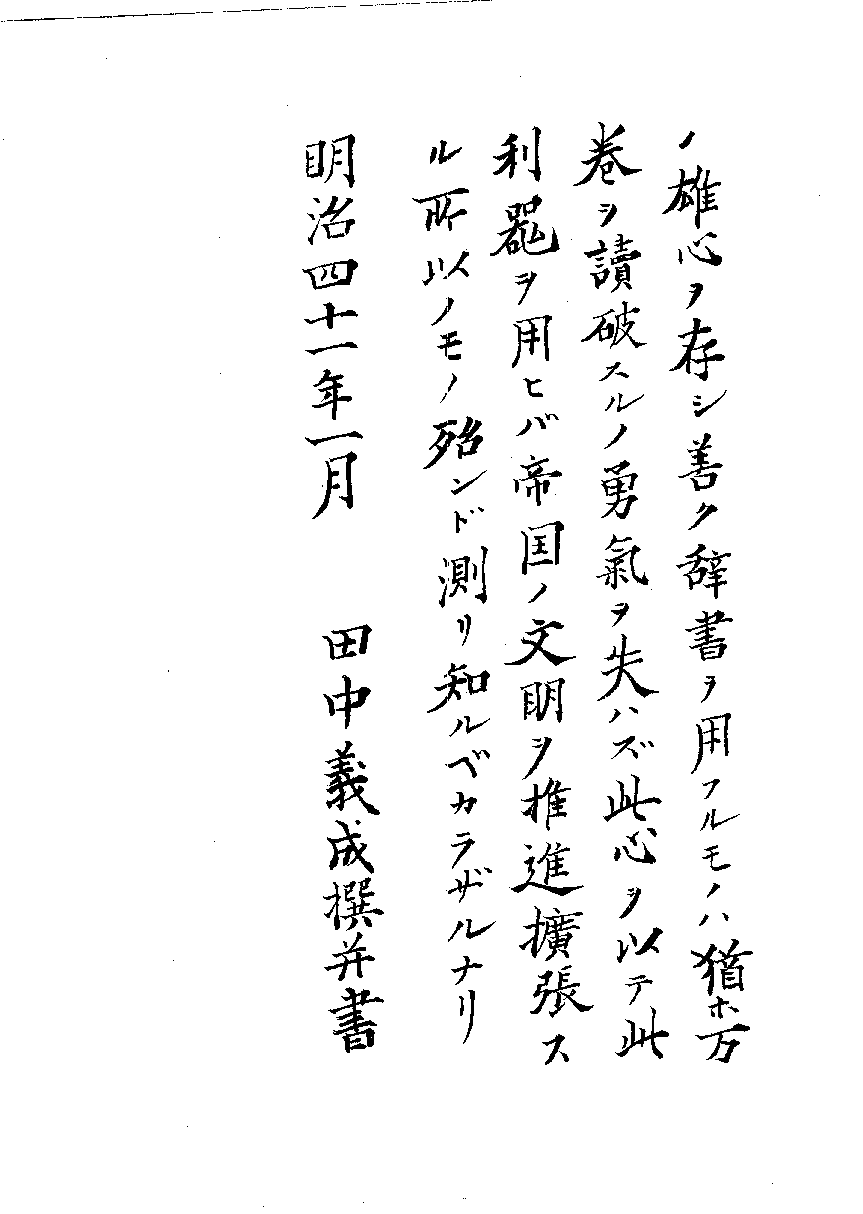 ノ雄心ヲ存シ善ク辞書ヲ用フルモノハ猶ホ万
巻ヲ讀破スルノ勇氣ヲ失ハズ此心ヲ以テ此
利器ヲ用ヒバ帝国ノ文明ヲ推進擴張ス
ル所以ノモノ殆ンド測リ知ルベカラザルナリ
明治四十一年一月 田中義成撰并書